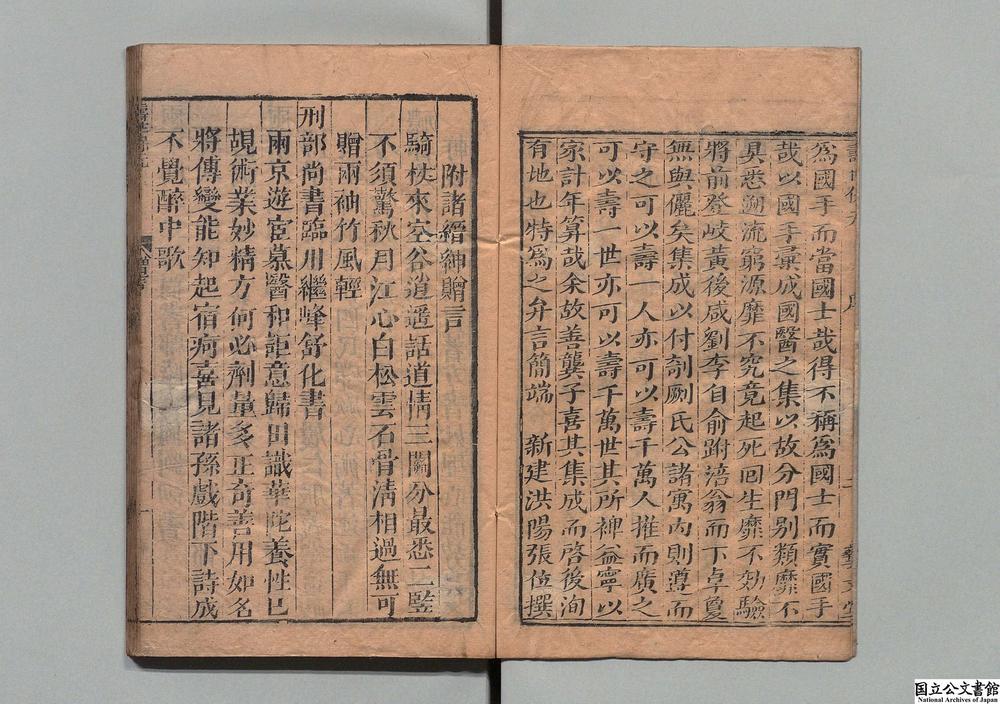 爲國手而當國士哉得不稱爲國士而實國手
哉以國手彙成國醫之集以故分門别類靡不
具悉遡流窮源靡不究竟起死回生靡不効驗
將前登岐黄後咸劉李自俞跗涪翁而下卓敻
無與儷矣集成以付剞劂氏公諸寓内則遵而
守之可以壽一人亦可以壽千萬人擁而廣之
可以壽一世亦可以壽千萬世其所裨益寧以
家計年算哉余故善龔子喜其集成而啓後洵
有地也特爲之弁言簡端 新建洪陽張位撰
附諸縉紳贈言
騎杖來空谷逍遥話道情三關分最悉二竪
不須驚秋月江心白松雲石骨淸相過無可
贈兩袖竹風輕
刑部尚書臨川繼峰舒化書
兩京遊宦慕醫和詎意歸田識華陀養性已
覘術業妙精方何必劑量多正奇善用如名
將傳變能知起宿疴喜見諸孫戲階下詩成
不覺醉中歌
国立公文書館
National Archives of Japan